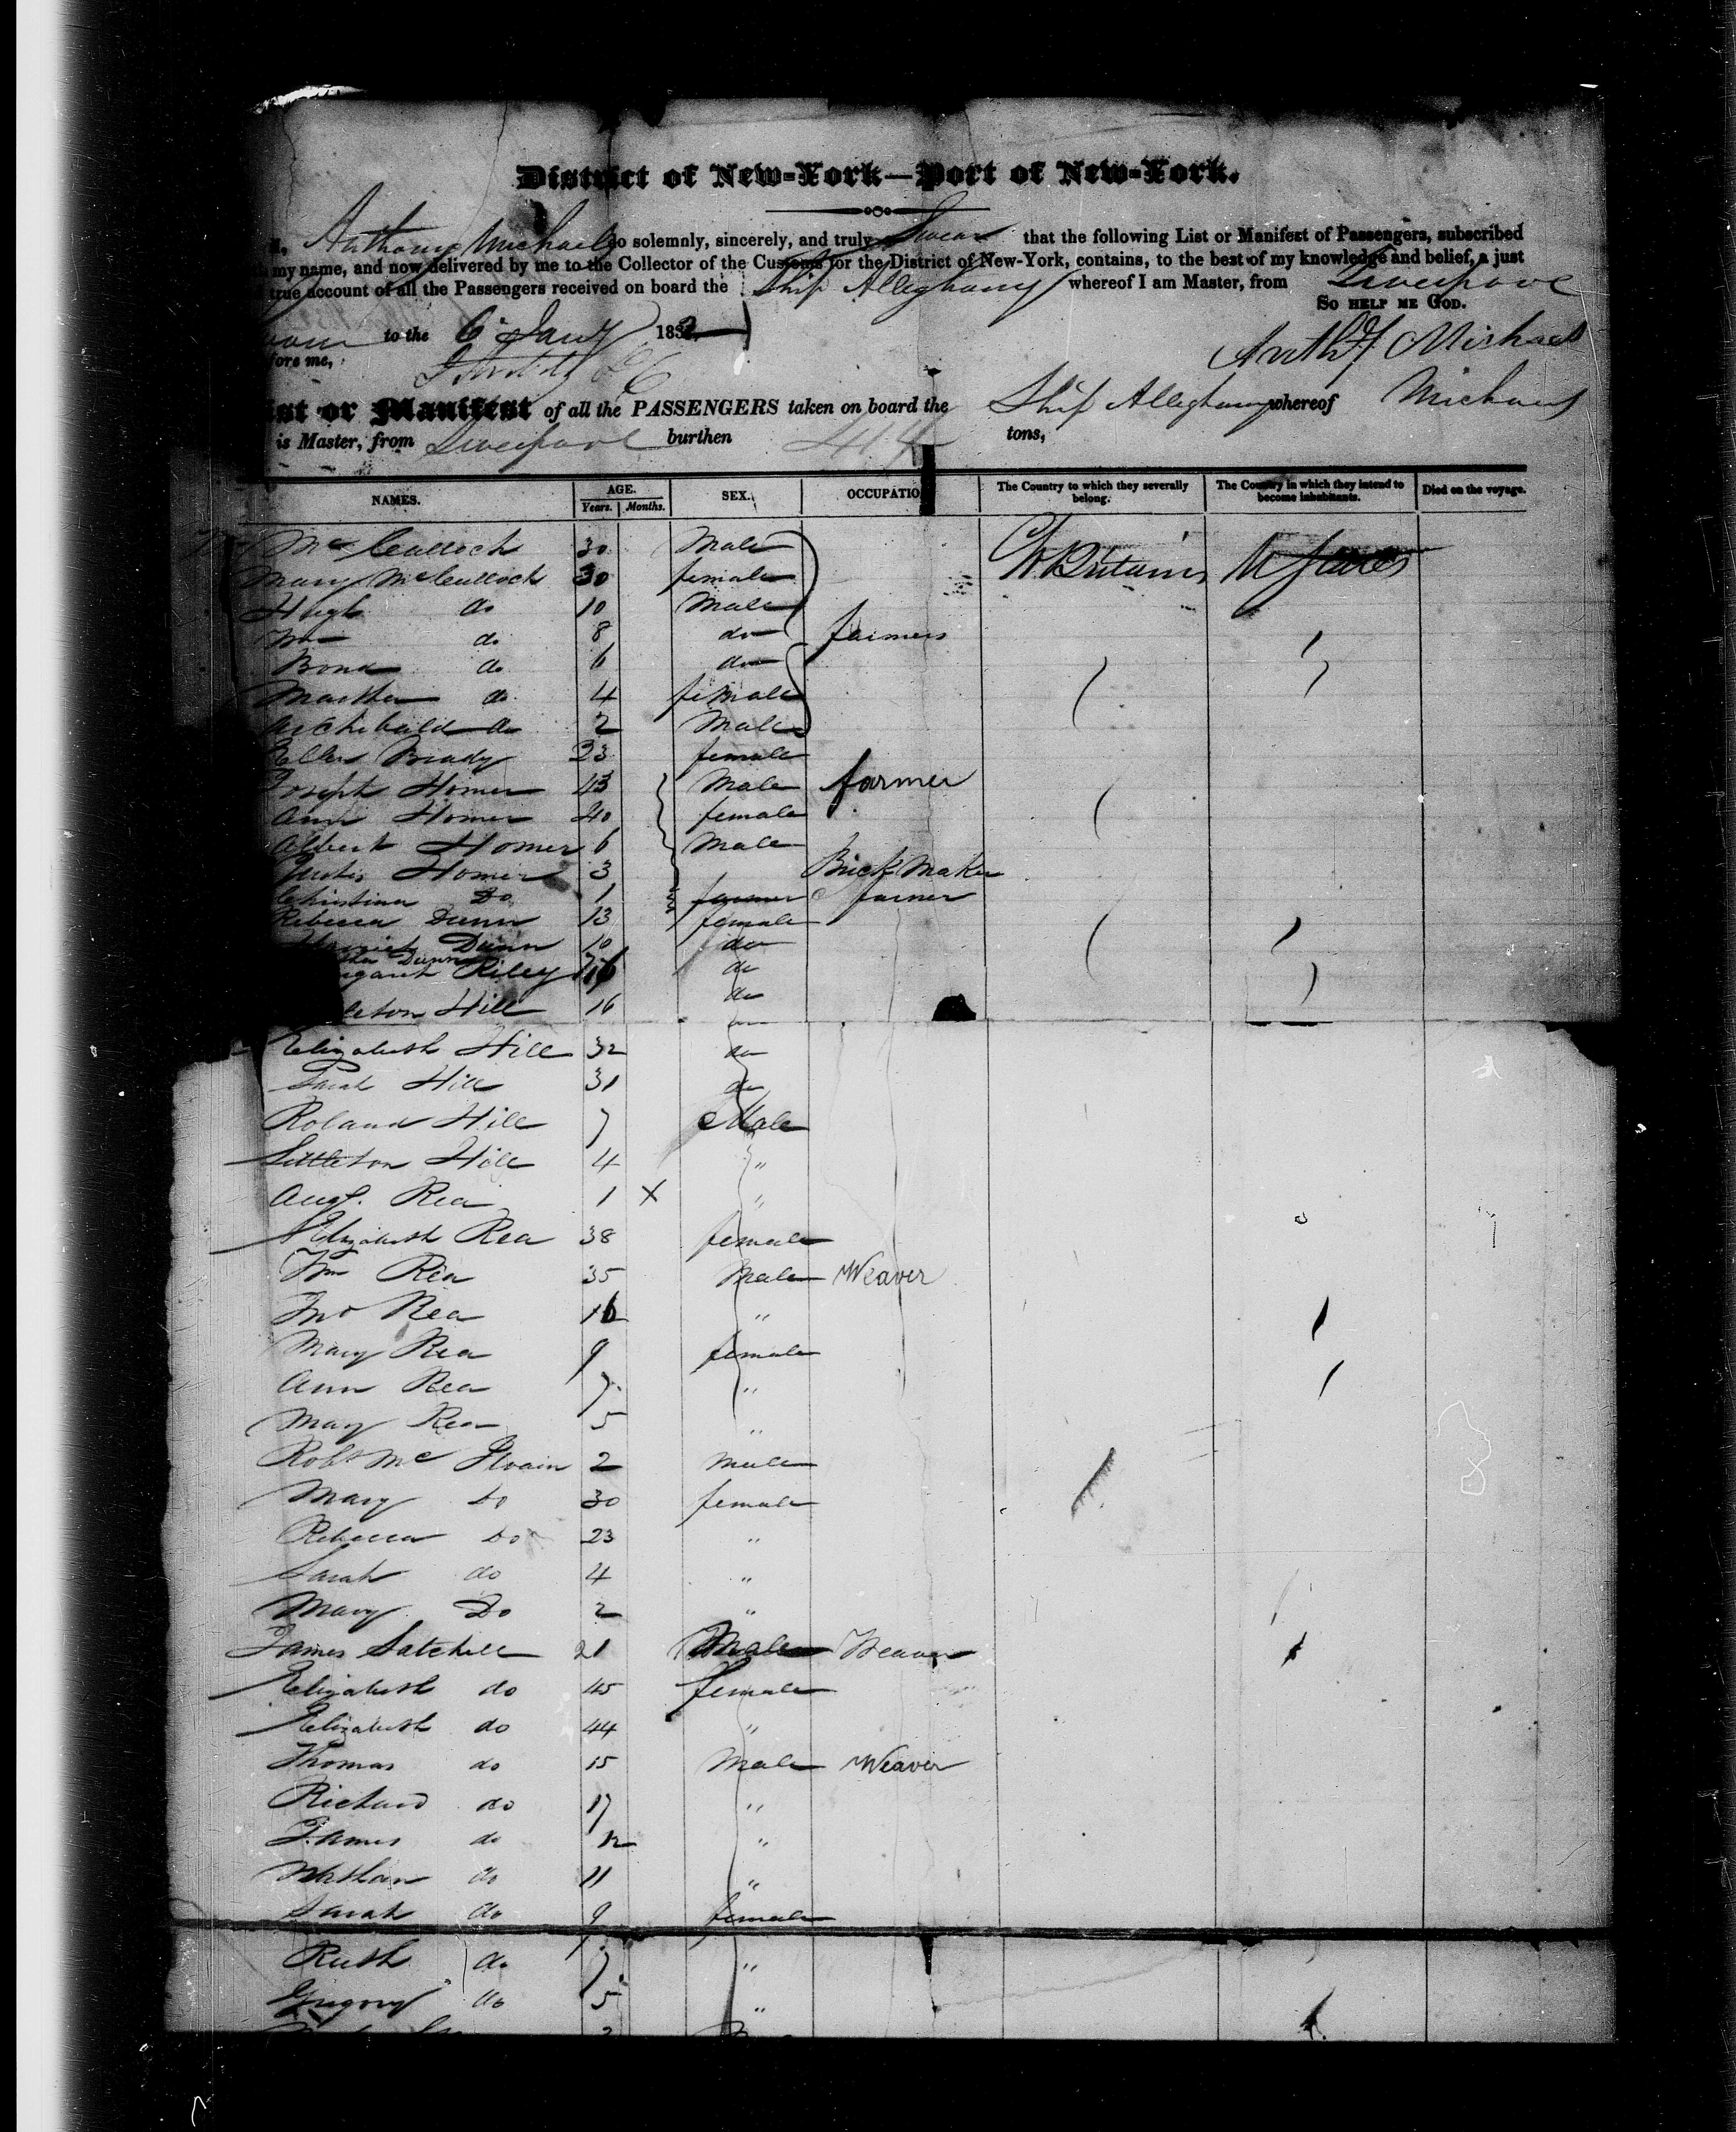 District of New-York—Port of New-York.
I, Anthony Michaels do solemnly, sincerely, and truly Swear that the following List or Manifest of Passengers, subscribed
my name, and now delivered by me to the Collector of the Customs for the District of New-York, contains, to the best of my knowledge and belief, a just
true account of all the Passengers received on board the Ship Alleghany whereof I am Master, from Liverpool
So help me God.
to the 6 Jany 1832
fore me,
Anthy Michaels
ist or Manifest of all the PASSENGERS taken on board the Ship Alleghany whereof Michaels
is Master, from Liverpool burthen 414 tons,
NAMES. AGE. Years. Months. SEX. OCCUPATIO The Country to which they severally belong. The Country in which they intend to become inhabitants. Died on the voyage.
McCulloch 30 Male Gt Britain U States
Mary McCulloch 30 female
Hugh do 10 Male
Wm do 8 do farmers
Bond do 6 do
Martha do 4 female
Archibald do 2 Male
Ellen Brady 23 female
Joseph Homer 43 Male farmer
Ann Homer 40 female
Albert Homer 6 Male
Homer 3 Brick Maker
Christina Do 1 farmer farmer
Rebecca Dunn 13 female
Harriet Dunn 10 do
Dunn
garet Riley do
leton Hill 16 do
Elizabeth Hill 32 do
Sarah Hill 31 do
Roland Hill 7 Male
Littleton Hill 4 "
Augt. Rea 1 X "
Elizabeth Rea 38 female
Wm Rea 35 Male Weaver
Jno Rea 16 "
Mary Rea 9 female
Ann Rea 7 "
Mary Rea 5 "
Robt Mc Ilvain 2 male
Mary Do 30 female
Rebecca Do 23 "
Sarah do 4 "
Mary Do 2 "
James Satchell 21 Male Weaver
Elizabeth do 45 female
Elizabeth do 44 "
Thomas do 15 Male Weaver
Richard do 17 "
James do 12 "
Nathan do 11 "
Sarah do 9 female
Ruth do 7 "
Gregory do 5 "